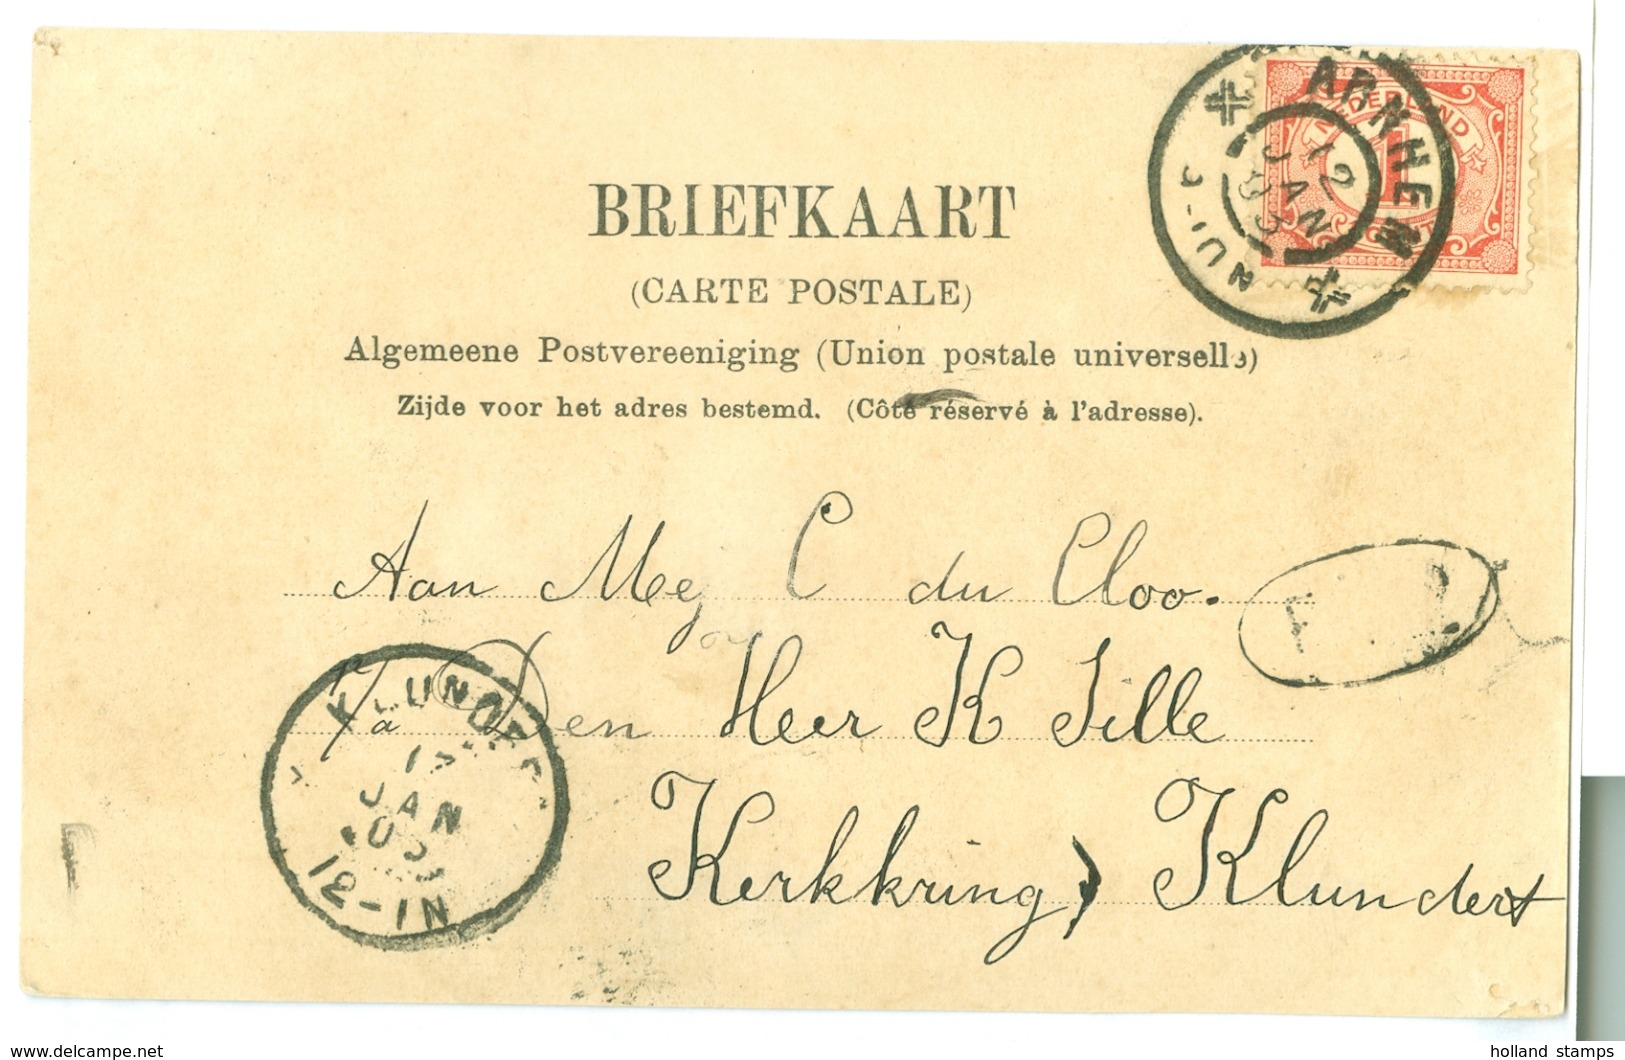 BRIEFKAART
(CARTE POSTALE)
Algemeene Postvereeniging (Union postale universelle)
Zijde voor het adres bestemd. (Côté réservé à l'adresse).
NEDERLAND
1
CENT
ARNHEM
12
JAN
Aan Mej C du Cloo.
p/a Den Heer K Sille
Kerkkring, Klundert
KLUNDERT
JAN
12-1N
delcampe.net
holland stamps